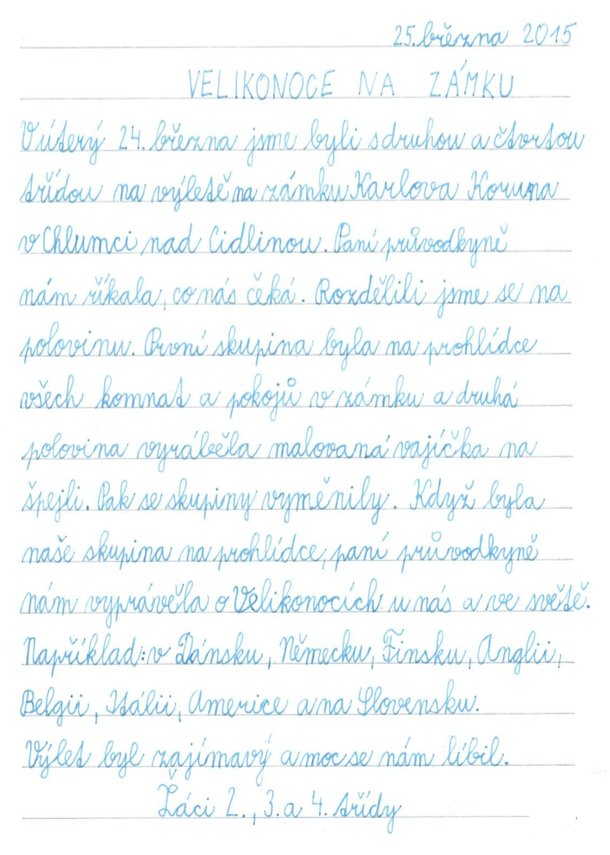 25. března 2015
VELIKONOCE NA ZÁMKU
V úterý 24. března jsme byli s druhou a čtvrtou
třídou na výletě na zámku Karlova Koruna
v Chlumci nad Cidlinou. Paní průvodkyně
nám říkala, co nás čeká. Rozdělili jsme se na
polovinu. První skupina byla na prohlídce
všech komnat a pokojů v zámku a druhá
polovina vyráběla malovaná vajíčka na
špejli. Pak se skupiny vyměnily. Když byla
naše skupina na prohlídce, paní průvodkyně
nám vyprávěla o Velikonocích u nás a ve světě.
Například: v Dánsku, Německu, Finsku, Anglii,
Belgii, Itálii, Americe a na Slovensku.
Výlet byl zajímavý a moc se nám líbil.
Žáci 2., 3. a 4. třídy